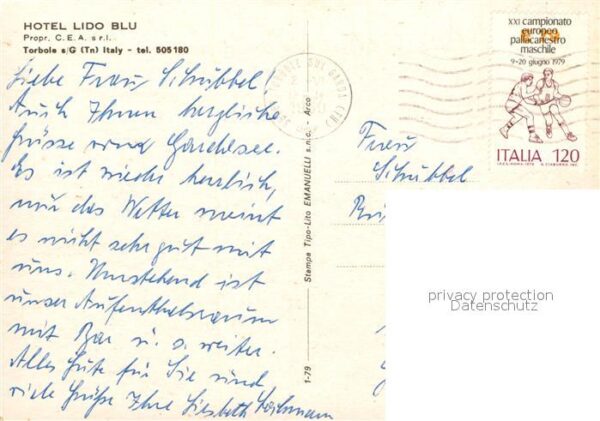 HOTEL LIDO BLU
Propr. C.E.A. s.r.l.
Torbole s/G (Tn) Italy - tel. 505180
Liebe Frau Schübbel!
Auch Ihnen herzliche
Grüsse vom Gardasee.
Es ist wieder herrlich,
nur das Wetter meint
es nicht sehr gut mit
uns. Umstehend ist
unser Aufenthaltsraum
mit Bar u. s. weiter.
Alles Gute für Sie und
viele Grüße Ihre Liesbeth
1-79 Stampa Tipo-Lito EMANUELLI s.n.c. - Arco
XXI campionato
europeo
pallacanestro
maschile
9-20 giugno 1979
ITALIA 120
Frau
Schübbel
privacy protection
Datenschutz